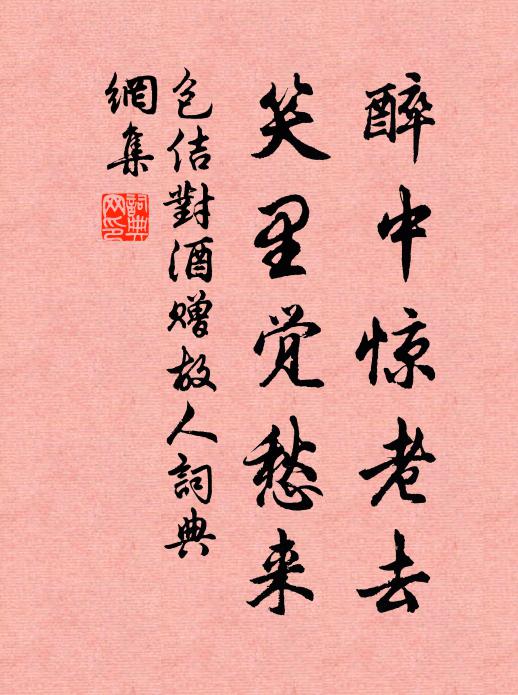 醉中惊老去
笑里觉愁来
包佶對酒赠故人詞典
網集
詞典
网印